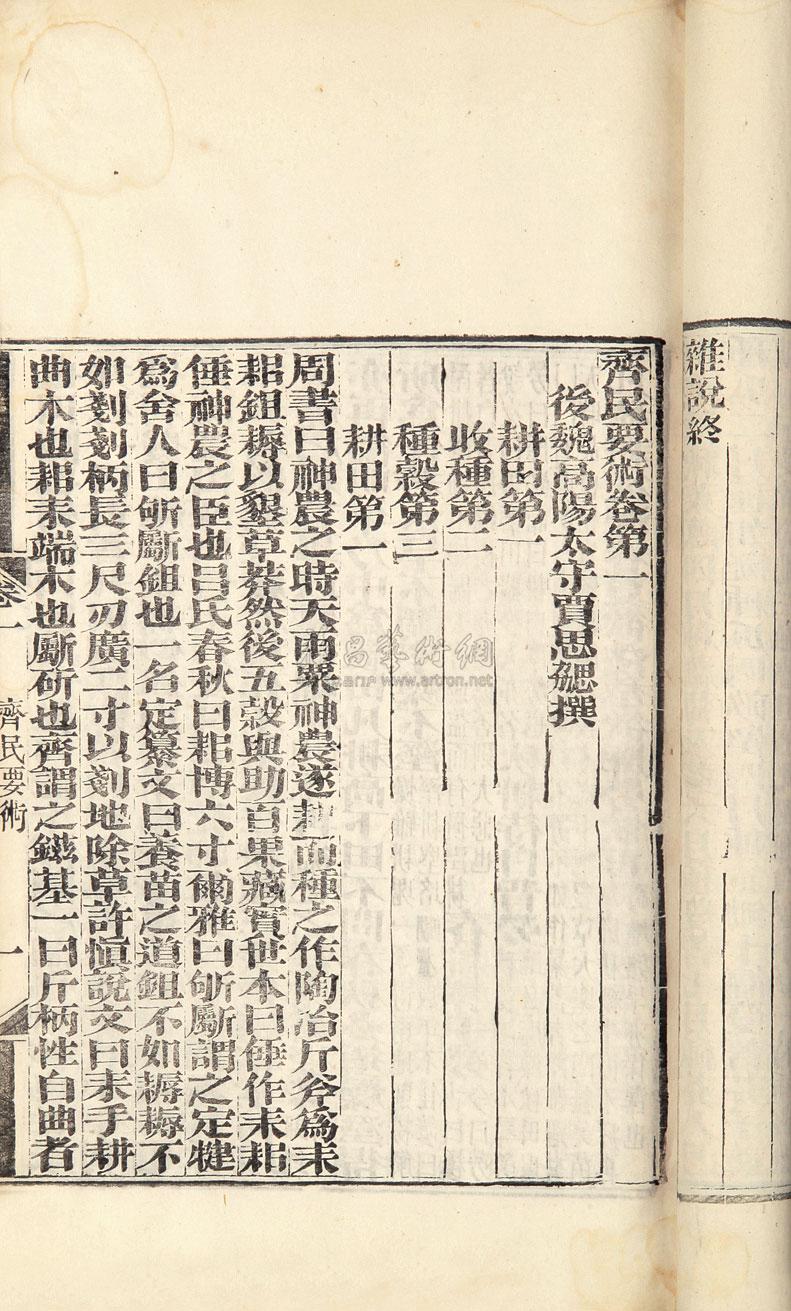 雜說終
齊民要術卷第一
後魏高陽太守賈思勰撰
耕田第一
收種第二
種穀第三
耕田第一
周書曰神農之時天雨粟神農遂耕而種之作陶冶斤斧爲耒
耜鉏耨以墾草莽然後五穀與助百果藏實世本曰倕作耒耜
倕神農之臣也呂氏春秋曰耜博六寸爾雅曰斪斸謂之定犍
爲舍人曰斪斸鉏也一名定纂文曰養苗之道鉏不如耨耨不
如剗剗柄長三尺刃廣二寸以剗地除草許愼說文曰耒手耕
曲木也耜耒端木也斸斫也齊謂之鎡基一曰斤柄性自曲者
卷一
齊民要術
一
www.artron.net